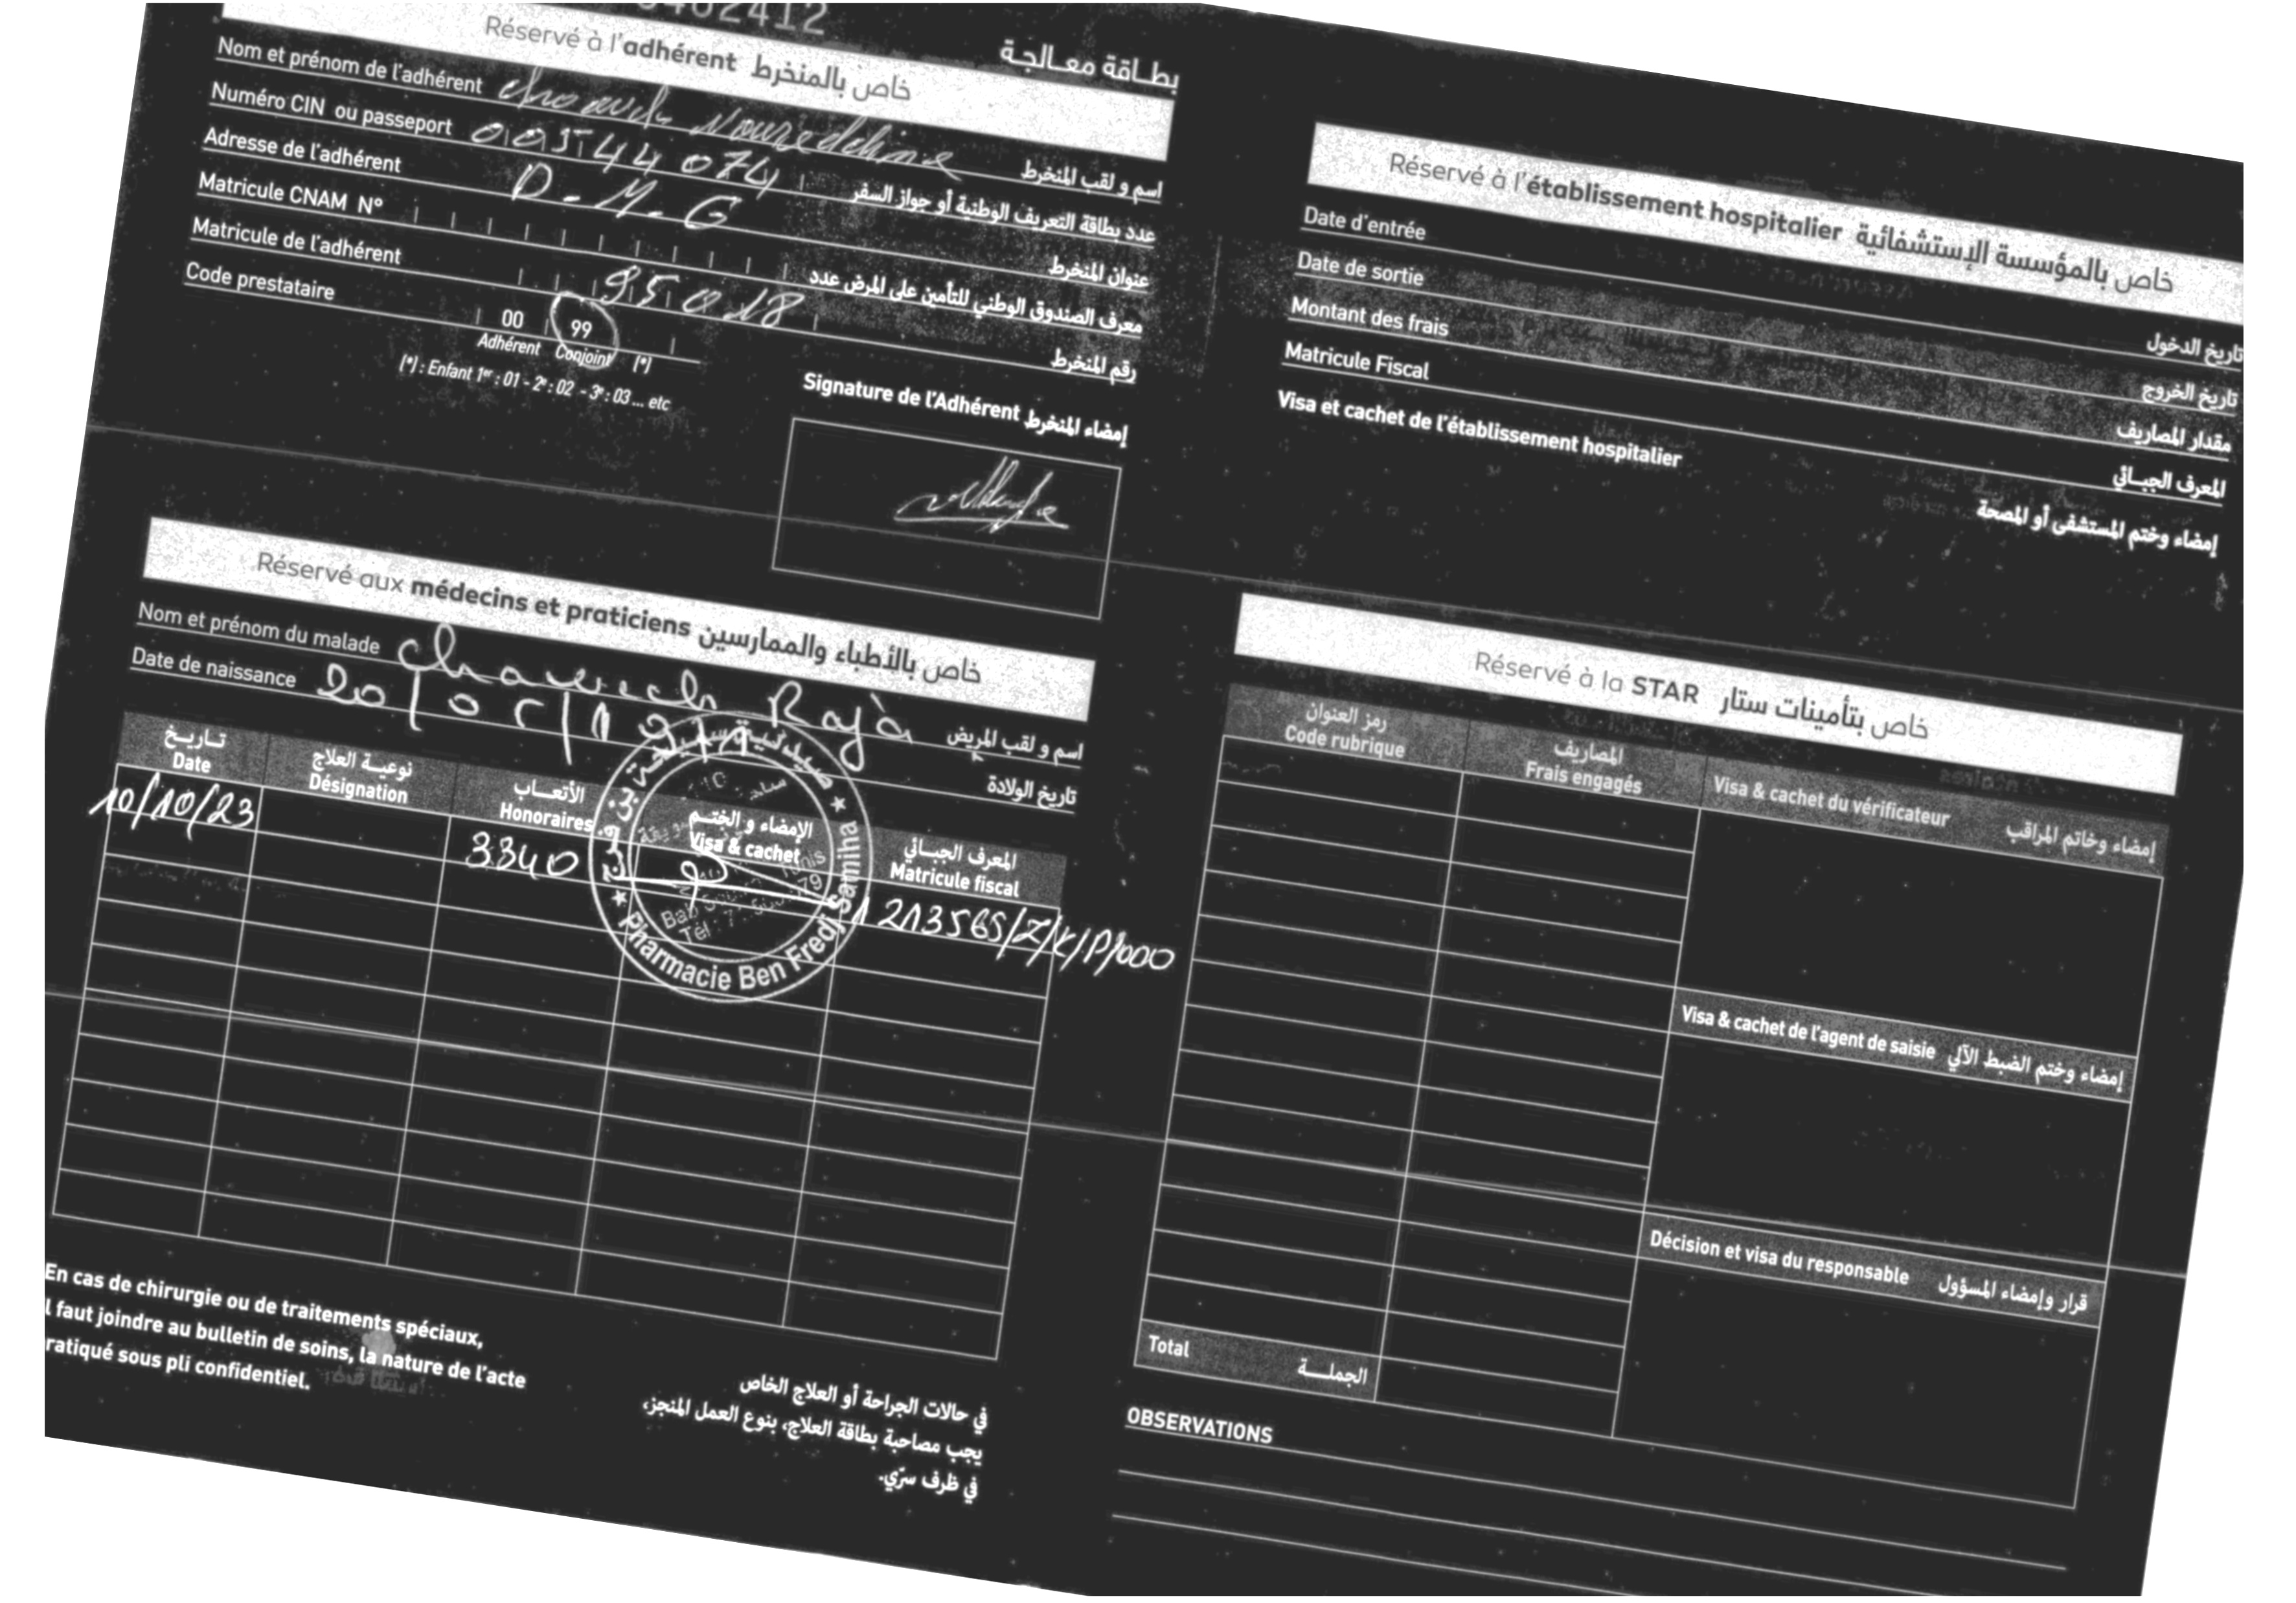 بطـاقة معـالجـة
Réservé à l'adhérent خاص بالمنخرط
Nom et prénom de l'adhérent Chaouch Noureddine اسم و لقب المنخرط
Numéro CIN ou passeport 00544074 عدد بطاقة التعريف الوطنية أو جواز السفر
Adresse de l'adhérent D-M-G عنوان المنخرط
Matricule CNAM N° معرف الصندوق الوطني للتأمين على المرض عدد
Matricule de l'adhérent 95018 رقم المنخرط
Code prestataire 00 99
Adhérent Conjoint (*)
(*) : Enfant 1er : 01 - 2e : 02 - 3e : 03 ... etc
Signature de l'Adhérent إمضاء المنخرط
Réservé aux médecins et praticiens خاص بالأطباء والممارسين
Nom et prénom du malade Chaouch Raja اسم و لقب المريض
Date de naissance تاريخ الولادة
تـاريـخ نوعيـة العلاج الأتعـاب الإمضاء و الختـم المعرف الجبـائي
Date Désignation Honoraires Visa & cachet Matricule fiscal
10/10/23 3340 1213565/Z/K/P/000
Pharmacie Ben Fredj Samiha
En cas de chirurgie ou de traitements spéciaux,
l faut joindre au bulletin de soins, la nature de l'acte
ratiqué sous pli confidentiel.
في حالات الجراحة أو العلاج الخاص
يجب مصاحبة بطاقة العلاج، بنوع العمل المنجز،
في ظرف سرّي.
Réservé à l'établissement hospitalier خاص بالمؤسسة الإستشفائية
Date d'entrée تاريخ الدخول
Date de sortie تاريخ الخروج
Montant des frais مقدار المصاريف
Matricule Fiscal المعرف الجبـائي
Visa et cachet de l'établissement hospitalier إمضاء وختم المستشفى أو المصحة
Réservé à la STAR خاص بتأمينات ستار
رمز العنوان المصاريف
Code rubrique Frais engagés Visa & cachet du vérificateur إمضاء وخاتم المراقب
Visa & cachet de l'agent de saisie إمضاء وختم الضبط الآلي
Décision et visa du responsable قرار وإمضاء المسؤول
Total الجملـــة
OBSERVATIONS